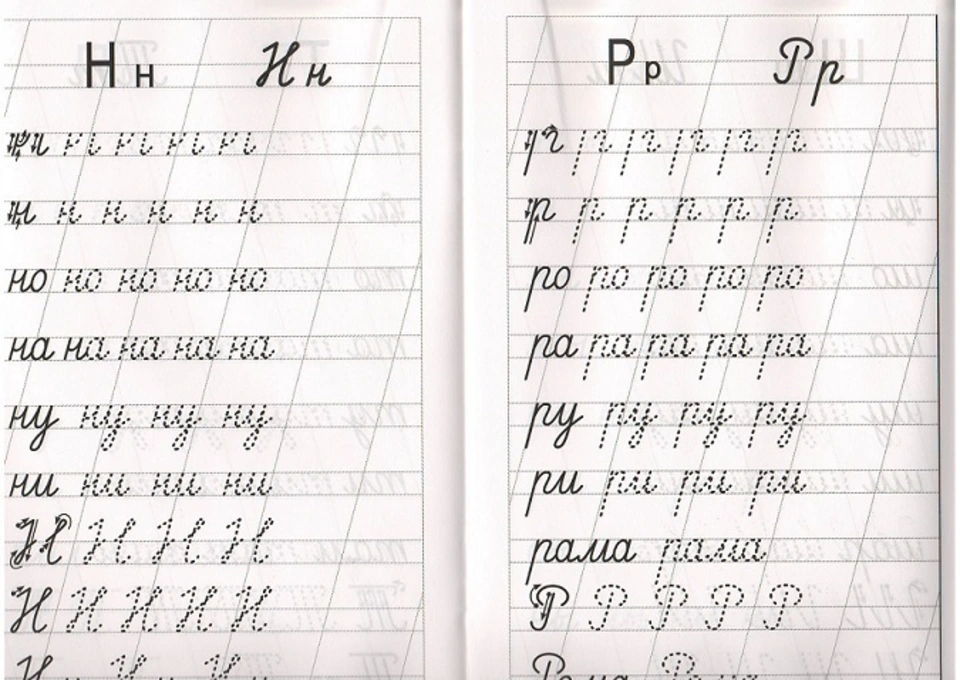 Н н Н н
н н н н н н
но но но но но
на на на на на
ну ну ну ну
ни ни ни ни
Н Н Н Н
Н Н Н Н Н
Р р Р р
р р р р р р
ро ро ро ро ро
ра ра ра ра ра
ру ру ру ру
ри ри ри ри
рама рама
Р Р Р Р Р
Рама Рама